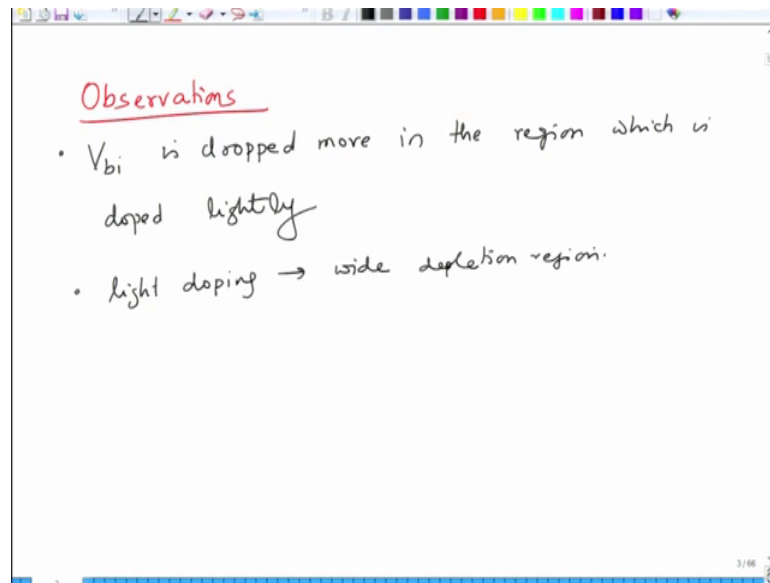 Observations
• Vbi is dropped more in the region which is
doped lightly
• light doping → wide depletion region.
3/66